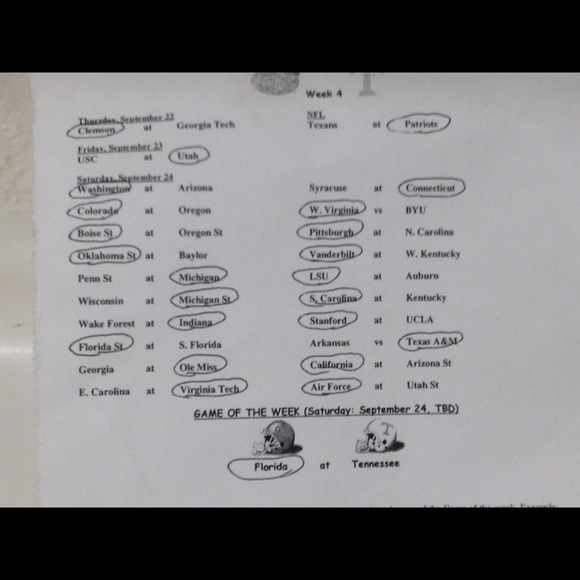 Week 4
Thursday, September 22
Clemson at Georgia Tech
NFL
Texans at Patriots
Friday, September 23
USC at Utah
Saturday, September 24
Washington at Arizona
Syracuse at Connecticut
Colorado at Oregon
W. Virginia vs BYU
Boise St at Oregon St
Pittsburgh at N. Carolina
Oklahoma St at Baylor
Vanderbilt at W. Kentucky
Penn St at Michigan
LSU at Auburn
Wisconsin at Michigan St
S. Carolina at Kentucky
Wake Forest at Indiana
Stanford at UCLA
Florida St at S. Florida
Arkansas vs Texas A&M
Georgia at Ole Miss
California at Arizona St
E. Carolina at Virginia Tech
Air Force at Utah St
GAME OF THE WEEK (Saturday: September 24, TBD)
T
Florida at Tennessee